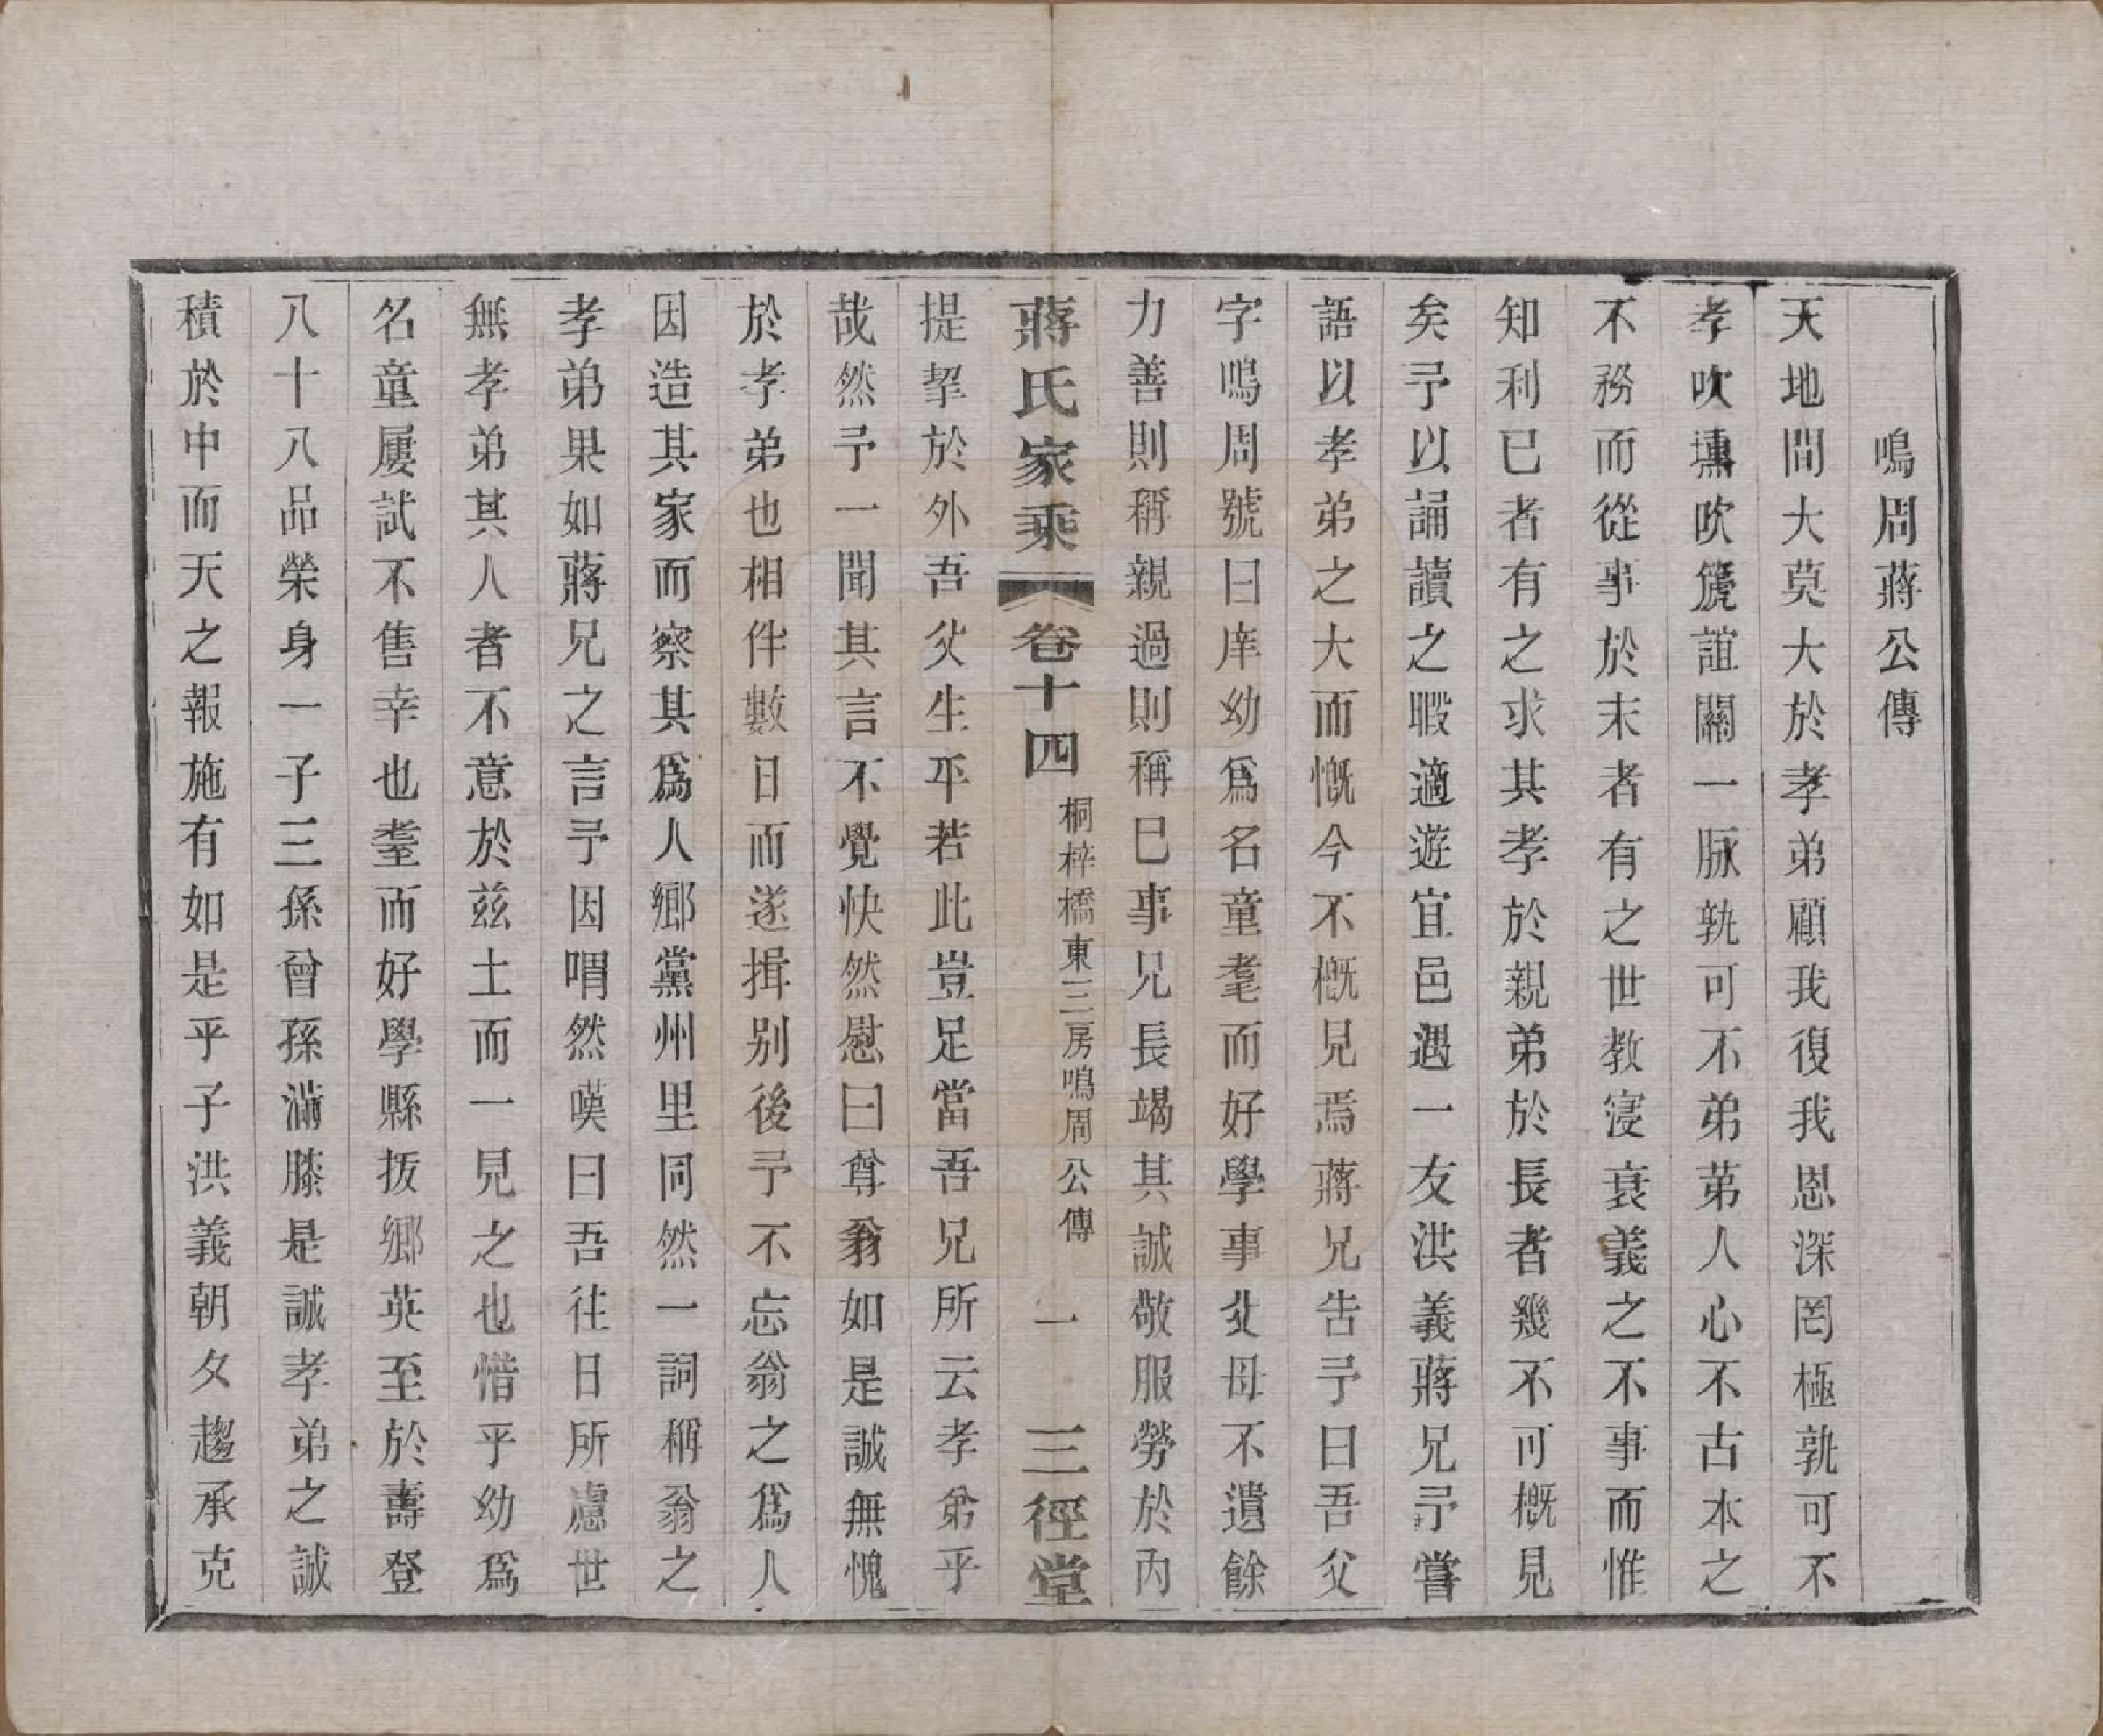 鳴周蔣公傳
天地間大莫大於孝弟顧我復我恩深罔極孰可不
孝吹壎吹篪誼關一脉孰可不弟第人心不古本之
不務而從事於末者有之世教寖衰義之不事而惟
知利已者有之求其孝於親弟於長者幾不可概見
矣予以誦讀之暇適遊宜邑遇一友洪義蔣兄予嘗
語以孝弟之大而慨今不概見焉蔣兄告予曰吾父
字鳴周號曰庠幼爲名童耄而好學事父母不遺餘
力善則稱親過則稱巳事兄長竭其誠敬服勞於內
蔣氏家乘 卷十四 桐梓橋東三房鳴周公傳 一 三徑堂
提挈於外吾父生平若此豈足當吾兄所云孝弟乎
哉然予一聞其言不覺快然慰曰尊翁如是誠無愧
於孝弟也相伴數日而遂揖别後予不忘翁之爲人
因造其家而察其爲人鄉黨州里同然一詞稱翁之
孝弟果如蔣兄之言予因喟然嘆曰吾往日所慮世
無孝弟其人者不意於茲土而一見之也惜乎幼爲
名童屢試不售幸也耋而好學縣拔鄉英至於壽登
八十八品榮身一子三孫曾孫滿膝是誠孝弟之誠
積於中而天之報施有如是乎子洪義朝夕趨承克